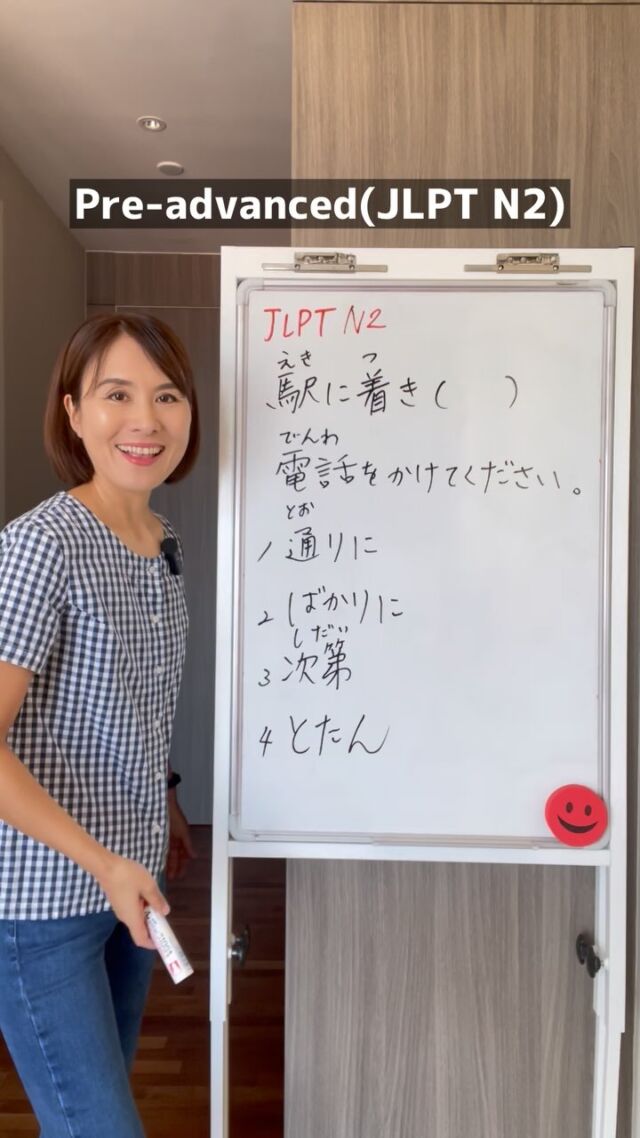 Pre-advanced(JLPT N2)
JLPT N2
えき つ
駅に着き( )
でんわ
電話をかけてください。
とお
1 通りに
2 ばかりに
しだい
3 次第
4 とたん